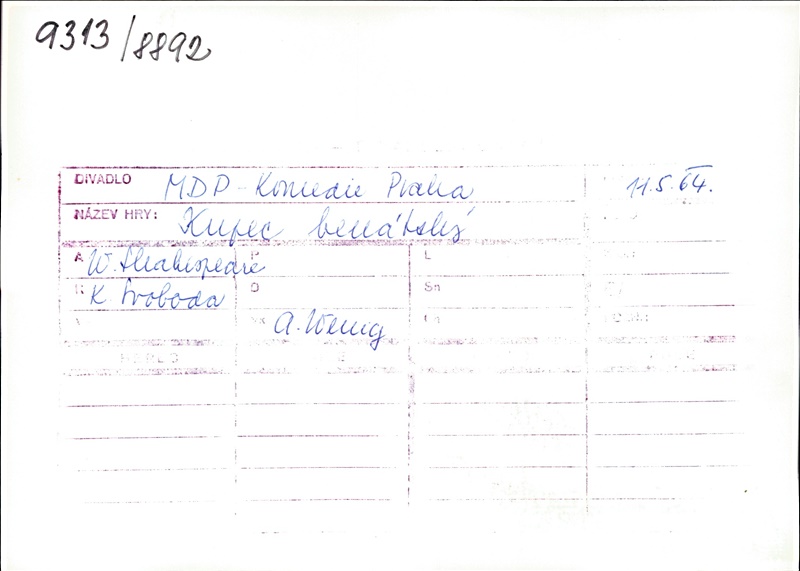 9313/8892
DIVADLO MDP - Komedie Praha 11.5.64.
NÁZEV HRY: Kupec benátský
A W. Shakespeare P L
R K. Svoboda O Sn
A. Wenig